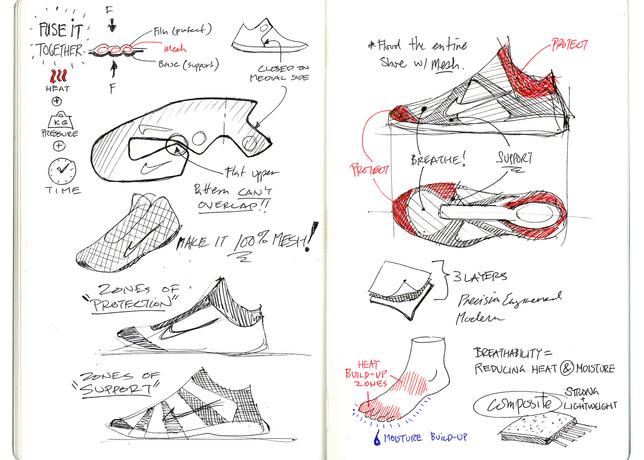 FUSE IT
TOGETHER
HEAT
+
KG
PRESSURE
+
TIME
F
Film (protect)
Mesh
Base (support)
F
CLOSED ON
MEDIAL SIDE
Flat upper
Pattern CAN'T
OVERLAP!!
MAKE IT 100% MESH!
ZONES OF
"PROTECTION"
ZONES OF
"SUPPORT"
*Flood the entire
Shoe w/ Mesh.
PROTECT
PROTECT
BREATHE!
SUPPORT
3 LAYERS
Precision Engineered
Modern
HEAT
BUILD-UP
ZONES
MOISTURE BUILD-UP
BREATHABILITY =
REDUCING HEAT & MOISTURE
Composite
STRONG
+
LIGHTWEIGHT